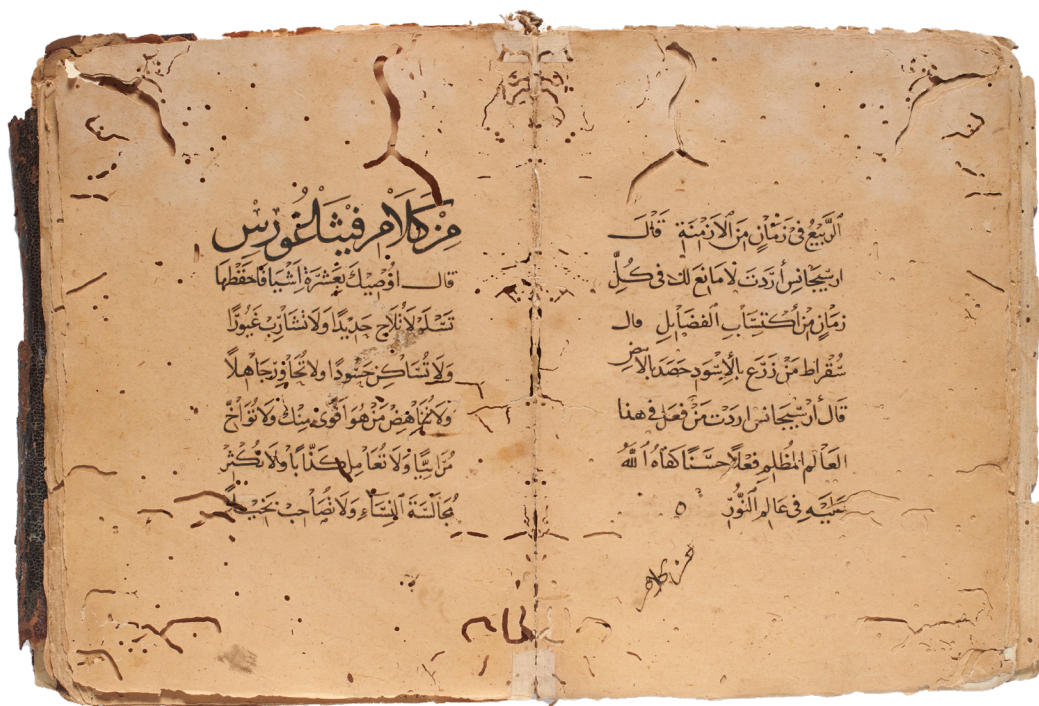 الرَّبيعُ فى زَمَانٍ مِنَ الأزمِنَةِ قَالَ
ارسيجانس أرَدتَ لامانعَ لك فى كُلِّ
زمانٍ مِن أكتسَابِ الفَضَايل قال
سُقراط مَن زَرَع بالأسْودِ حَصَد بالابيض
قَال أرسيجانس اردت مَن فعل فى هذا
العَالم المُظلمِ فعْلاً حسَناً كافاهُ اللَّهُ
عَليهِ فى عَالم النُّور ه
من كلام
مِن كَلام فيثاغورس
قال اوُصيكَ بعَشرَة اَشيَا فاحفَظها
تَسْلَم لَا تُلَاج حَديدًا وَلَا تشَارب غَيُورًا
وَلَا تُسَاكن حَسُودًا ولا تُجاوِر جَاهلاً
وَلا تُنَاهِض مَن هُوَ اَقوى مِنكَ وَلَا تُوَاخ
مُرَائيًا وَلَا تُعَامِل كذّابًا ولَا تُكثر
مُجَالَسَةَ النِسَاءِ وَلَا تُصَاحِب بَخيلاً